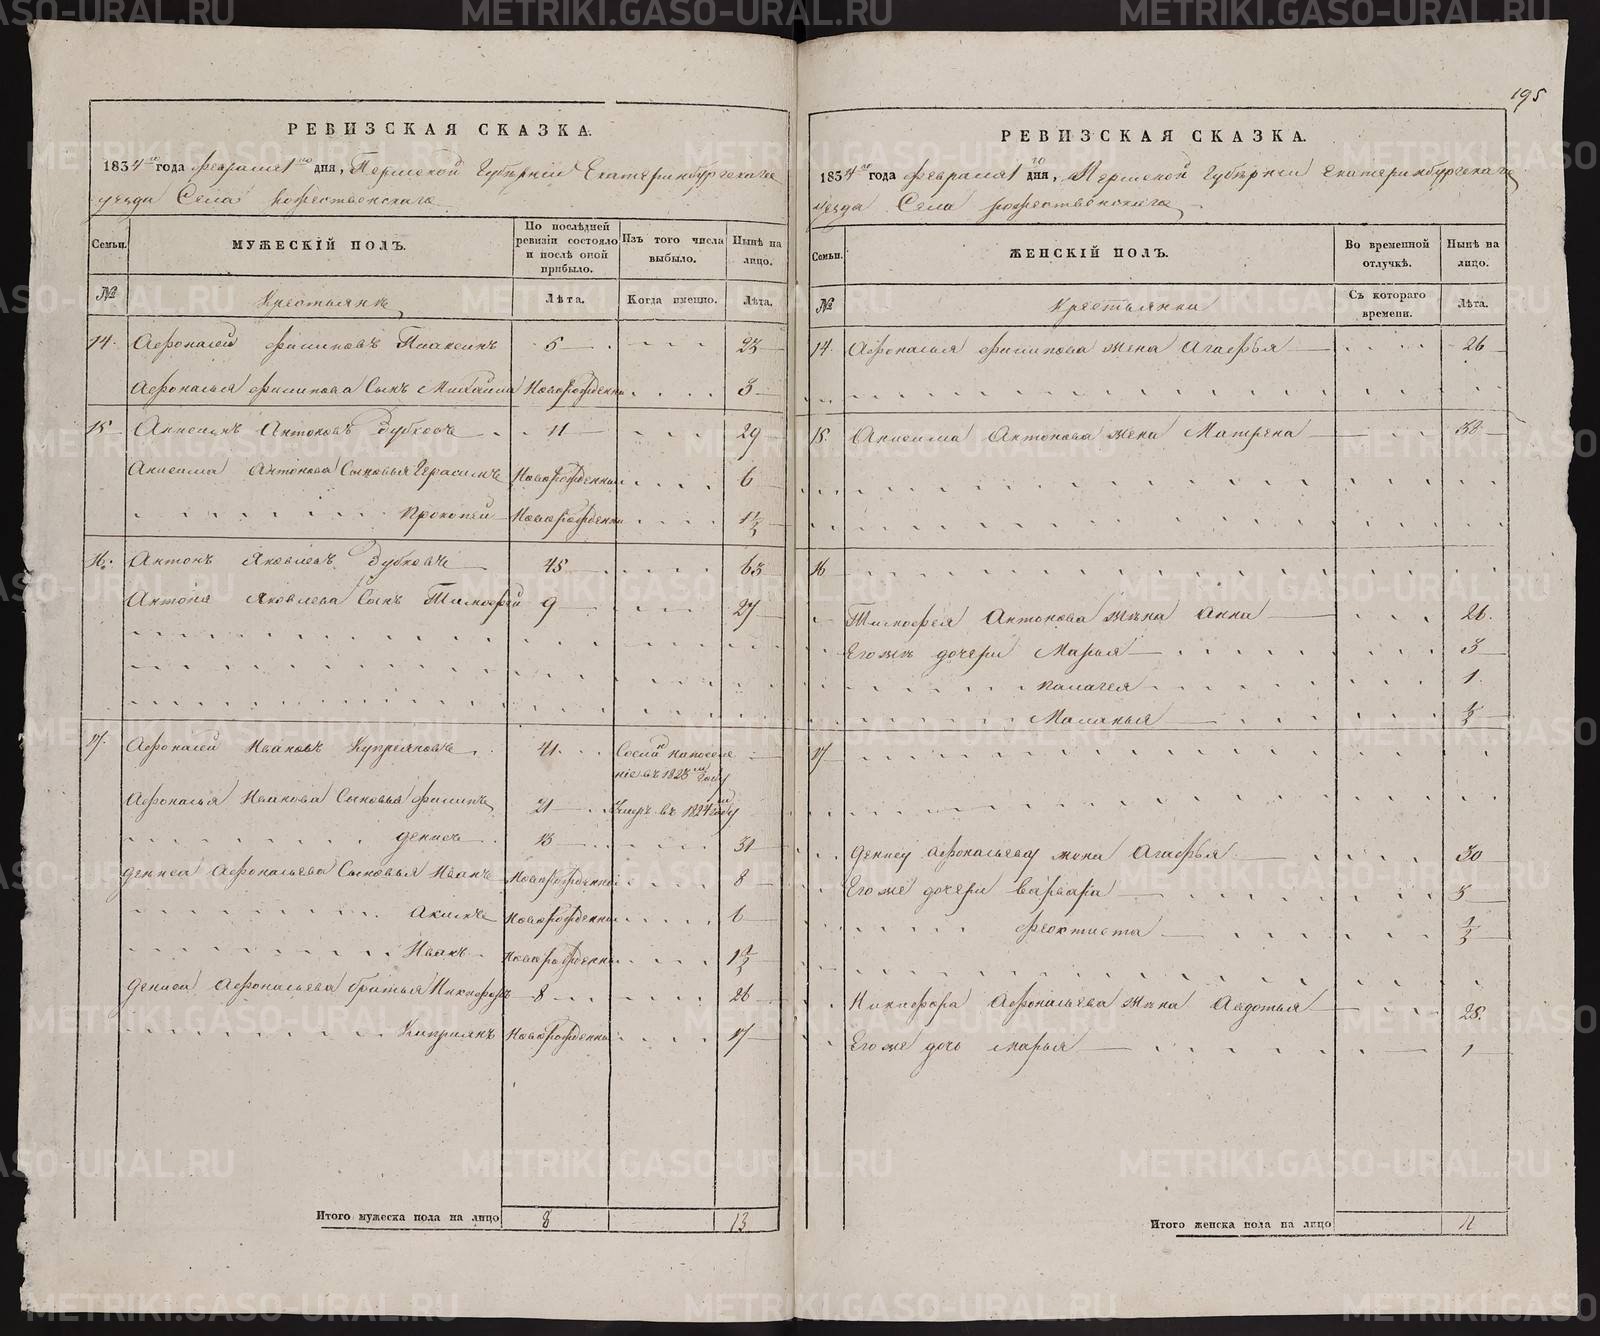 195
РЕВИЗСКАЯ СКАЗКА.
1834го года февраля 1го дня, Пермской Губернiи Екатеринбургскаго
уезда Села рожественскаго
Семьи.
МУЖЕСКІЙ ПОЛЪ.
По послѣдней ревизіи состояло и послѣ оной прибыло.
Изъ того числа выбыло.
Нынѣ на лицо.
№
Крестьянъ
Лѣта.
Когда именно.
Лѣта.
14. Афонасей филиповъ 5 23
Афонасья филипова Сынъ Михайла Новорожденны 3
15 Анисимъ Антоновъ Зубковъ 11 29
Анисима Антонова Сыновья Герасимъ Новорожденны 6
Прокопей Новорожденны 1 1/2
16. Антонъ Яковлевъ Зубковъ 45 63
Антона Яковлева Сынъ Тимофей 9 27
17. Афонасей Ивановъ Купреяновъ 41 Сосланъ на поселе
ніе въ 1823м году
Афонасья Иванова Сыновья филипъ 21 Умеръ въ 1824м году
денисъ 13 31
дениса Афонасьева Сыновья Иванъ Новорожденны 8
Акимъ Новорожденны 6
Иванъ Новорожденны 1 1/2
дениса Афонасьева братья Никифоръ 8 26
Киприянъ Новорожденны 17
Итого мужеска пола на лицо 8 13
РЕВИЗСКАЯ СКАЗКА.
1834го года февраля 1го дня, Пермской Губернiи Екатеринбургскаго
уезда Села рожественскаго
Семьи.
ЖЕНСКІЙ ПОЛЪ.
Во временной отлучкѣ.
Нынѣ на лицо.
№
Крестьянки
Съ котораго времени.
Лѣта.
14. Афонасья филипова жена Агафья 26
15. Анисима Антонова жена Матрена 38
16
Тимофея Антонова жена Анна 26.
Его же дочери Марья 3
палагея 1.
Маланья 1/2
17
Денису Афонасьеву жена Агафья 30
Его же дочери варвара 3
феоктиста 1/2
Никифора Афонасьева жена Авдотья 25.
Его же дочь марья 1
Итого женска пола на лицо 11
METRIKI.GASO-URAL.RU